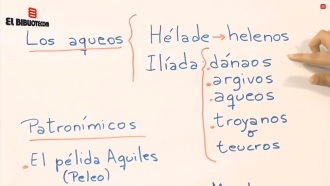 EL BIBLIOTECOM
Los aqueos
Hélade → helenos
Ilíada
.dánaos
.argivos
.aqueos
.troyanos
o
teucros
Patronímicos
.El pélida Aquiles
(Peleo)